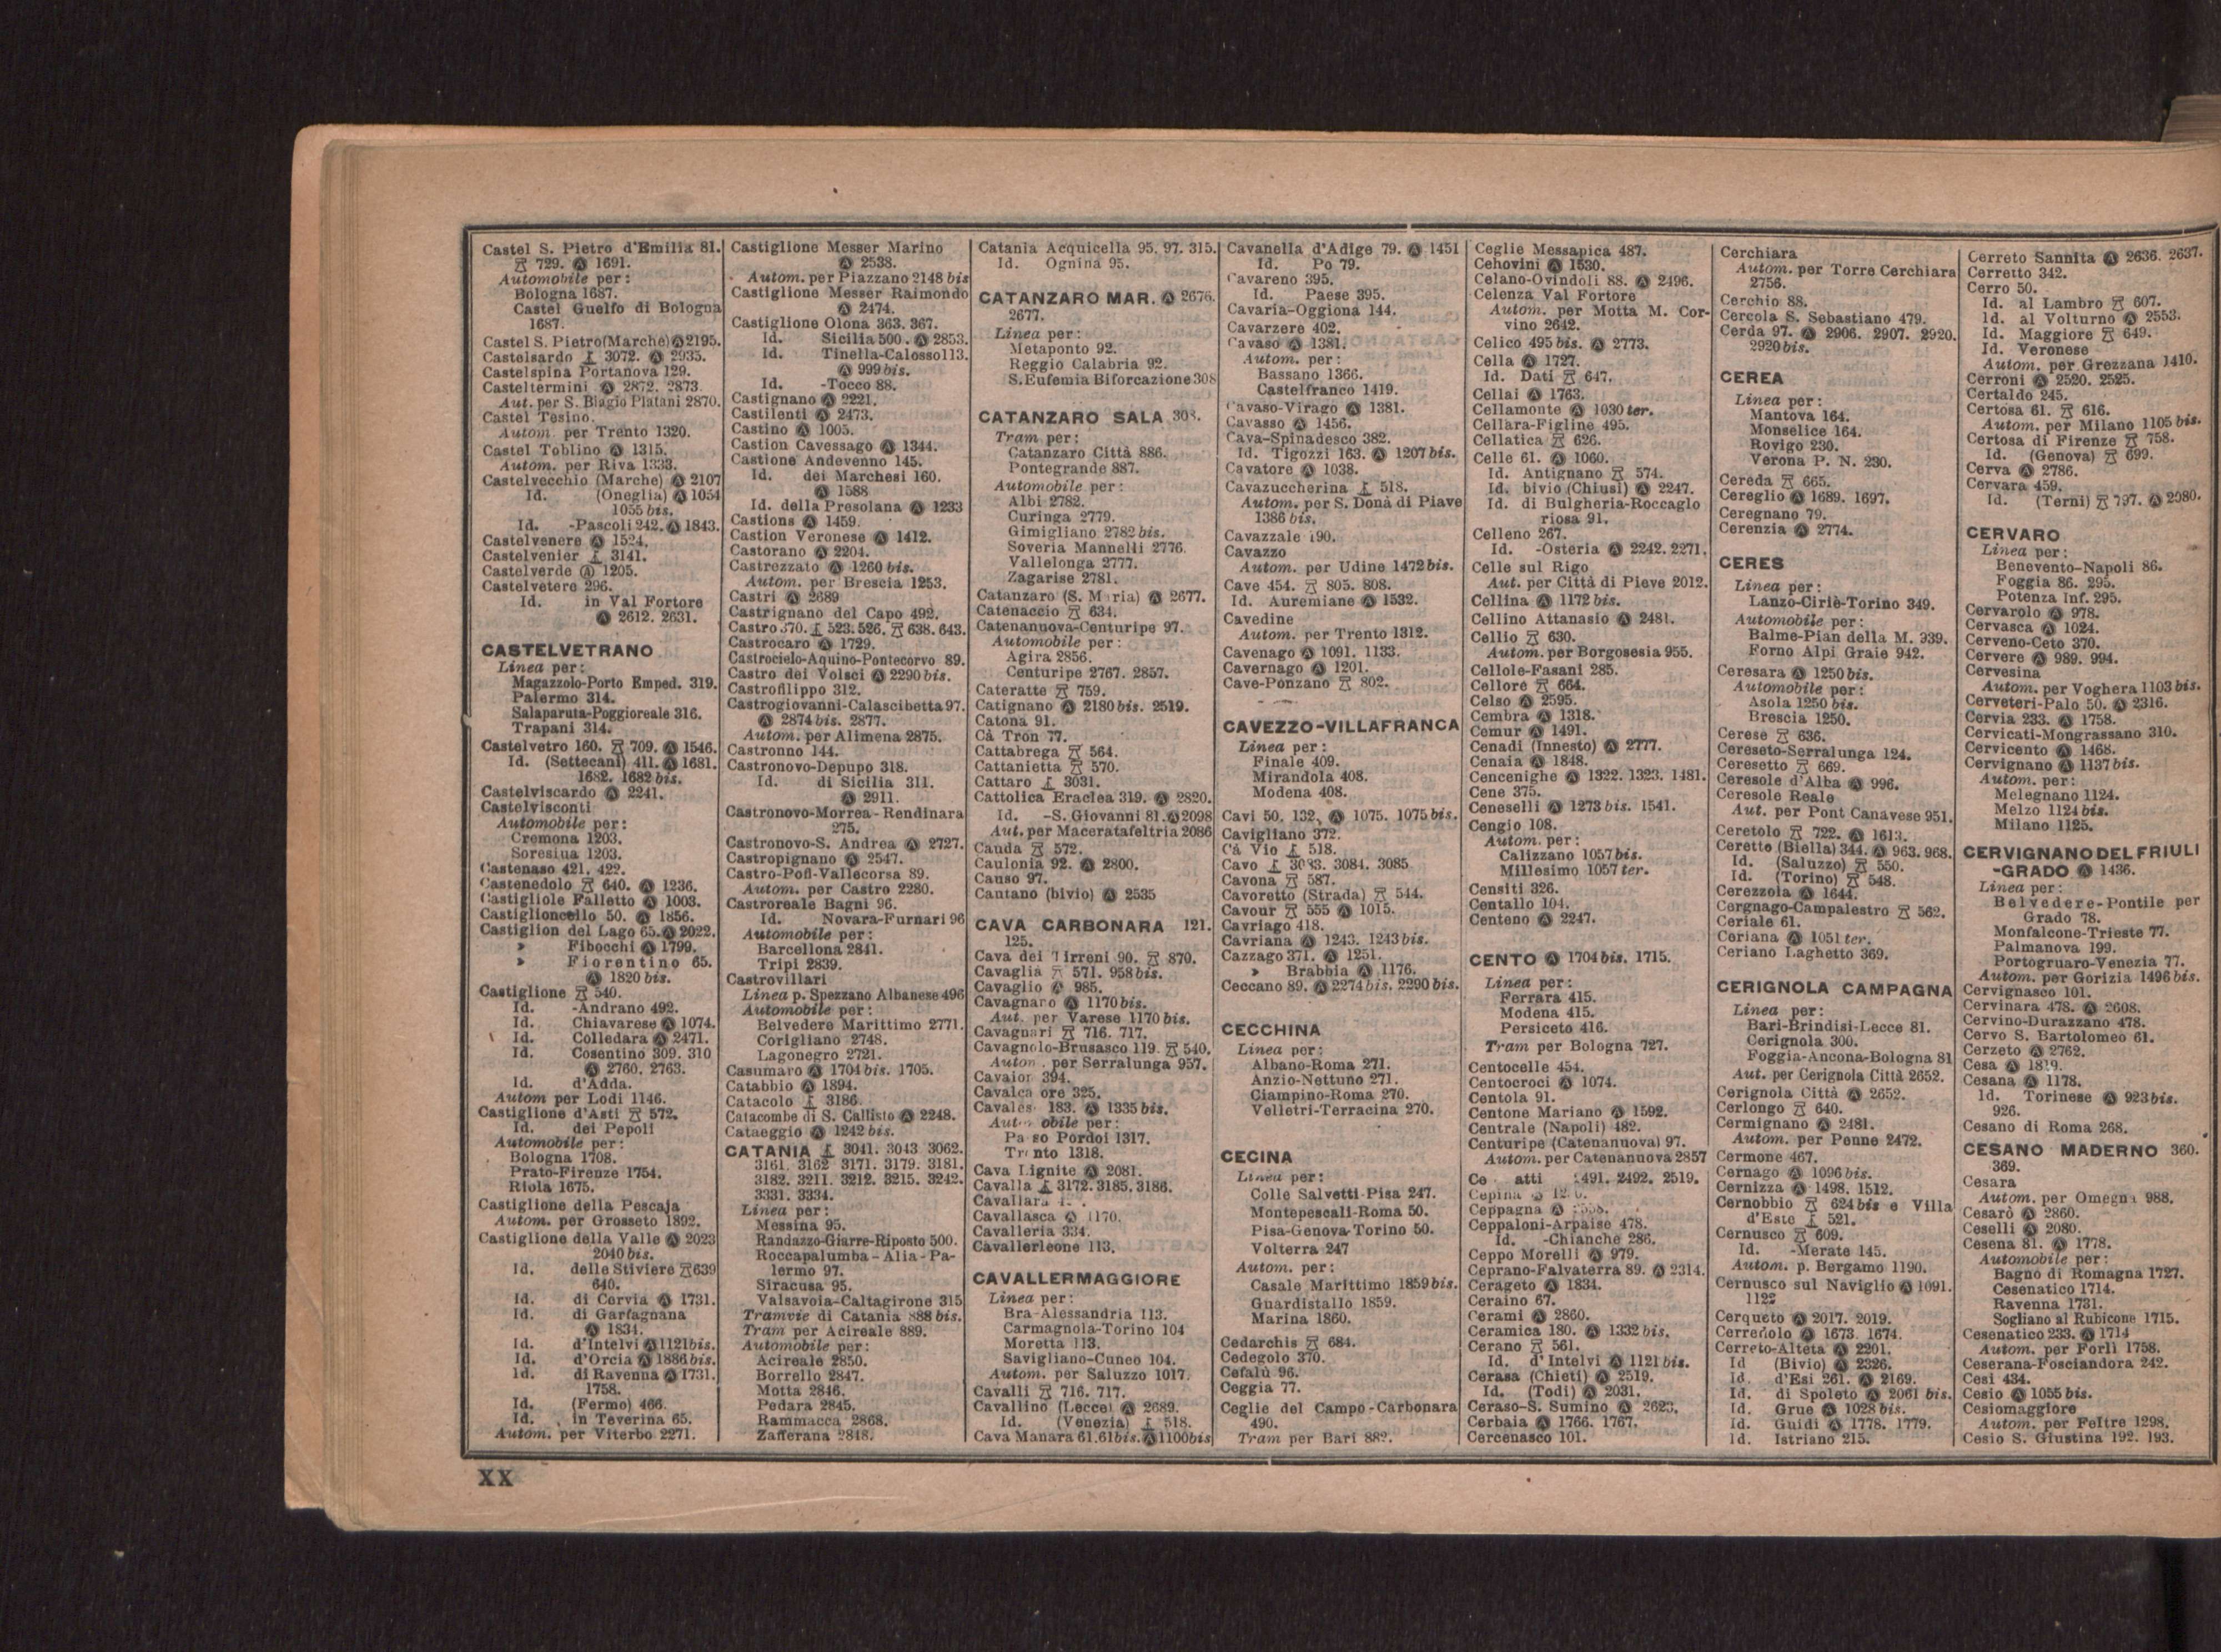 Castel S. Pietro d'Emilia 81.
729. Ⓐ 1691.
Automobile per:
Bologna 1687.
Castel Guelfo di Bologna
1687.
Castel S. Pietro(Marche)Ⓐ2195.
Castelsardo 3072. Ⓐ 2935.
Castelspina Portanova 129.
Casteltermini Ⓐ 2872. 2873.
Aut. per S. Biagio Platani 2870.
Castel Tesino.
Autom. per Trento 1320.
Castel Toblino Ⓐ 1315.
Autom. per Riva 1333.
Castelvecchio (Marche) Ⓐ 2107
Id. (Oneglia) Ⓐ 1054
1055 bis.
Id. -Pascoli 242. Ⓐ 1843.
Castelvenere Ⓐ 1524.
Castelvenier 3141.
Castelverde Ⓐ 1205.
Castelvetere 296.
Id. in Val Fortore
Ⓐ 2612. 2631.
CASTELVETRANO
Linea per:
Magazzolo-Porto Emped. 319.
Palermo 314.
Salaparuta-Poggioreale 316.
Trapani 314.
Castelvetro 160. 709. Ⓐ 1546.
Id. (Settecani) 411. Ⓐ 1681.
1682. 1682 bis.
Castelviscardo Ⓐ 2241.
Castelvisconti
Automobile per:
Cremona 1203.
Soresina 1203.
Castenaso 421. 422.
Castenedolo 640. Ⓐ 1236.
Castigliole Falletto Ⓐ 1003.
Castiglioncello 50. Ⓐ 1856.
Castiglion del Lago 65. Ⓐ 2022.
» Fibocchi Ⓐ 1799.
» Fiorentino 65.
Ⓐ 1820 bis.
Castiglione 540.
Id. -Andrano 492.
Id. Chiavarese Ⓐ 1074.
Id. Colledara Ⓐ 2471.
Id. Cosentino 309. 310
Ⓐ 2760. 2763.
Id. d'Adda.
Autom per Lodi 1146.
Castiglione d'Asti 572.
Id. dei Pepoli
Automobile per:
Bologna 1708.
Prato-Firenze 1754.
Riola 1675.
Castiglione della Pescaja
Autom. per Grosseto 1892.
Castiglione della Valle Ⓐ 2023
2040 bis.
Id. delle Stiviere 639
640.
Id. di Cervia Ⓐ 1731.
Id. di Garfagnana
Ⓐ 1834.
Id. d'Intelvi Ⓐ 1121bis.
Id. d'Orcia Ⓐ 1886bis.
Id. di Ravenna Ⓐ 1731.
1758.
Id. (Fermo) 466.
Id. in Teverina 65.
Autom. per Viterbo 2271.
Castiglione Messer Marino
Ⓐ 2538.
Autom. per Piazzano 2148 bis
Castiglione Messer Raimondo
Ⓐ 2474.
Castiglione Olona 363. 367.
Id. Sicilia 500. Ⓐ 2853.
Id. Tinella-Calosso113.
Ⓐ 999 bis.
Id. -Tocco 88.
Castignano Ⓐ 2221.
Castilenti Ⓐ 2473.
Castino Ⓐ 1005.
Castion Cavessago Ⓐ 1344.
Castione Andevenno 145.
Id. dei Marchesi 160.
Ⓐ 1588
Id. della Presolana Ⓐ 1233
Castions Ⓐ 1459.
Castion Veronese Ⓐ 1412.
Castorano Ⓐ 2204.
Castrezzato Ⓐ 1260 bis.
Autom. per Brescia 1253.
Castri Ⓐ 2689
Castrignano del Capo 492.
Castro 370. 523. 526. 638. 643.
Castrocaro Ⓐ 1729.
Castrocielo-Aquino-Pontecorvo 89.
Castro dei Volsci Ⓐ 2290 bis.
Castrofilippo 312.
Castrogiovanni-Calascibetta 97.
Ⓐ 2874 bis. 2877.
Autom. per Alimena 2875.
Castronno 144.
Castronovo-Depupo 318.
Id. di Sicilia 311.
Ⓐ 2911.
Castronovo-Morrea-Rendinara
275.
Castronovo-S. Andrea Ⓐ 2727.
Castropignano Ⓐ 2547.
Castro-Pofi-Vallecorsa 89.
Autom. per Castro 2280.
Castroreale Bagni 96.
Id. Novara-Furnari 96
Automobile per:
Barcellona 2841.
Tripi 2839.
Castrovillari
Linea p. Spezzano Albanese 496
Automobile per:
Belvedere Marittimo 2771.
Corigliano 2748.
Lagonegro 2721.
Casumaro Ⓐ 1704 bis. 1705.
Catabbio Ⓐ 1894.
Catacolo 3186.
Catacombe di S. Callisto Ⓐ 2248.
Cataeggio Ⓐ 1242 bis.
CATANIA 3041. 3043 3062.
3161. 3162 3171. 3179. 3181.
3182. 3211. 3212. 3215. 3242.
3331. 3334.
Linea per:
Messina 95.
Randazzo-Giarre-Riposto 500.
Roccapalumba-Alia-Pa-
lermo 97.
Siracusa 95.
Valsavoia-Caltagirone 315
Tramvie di Catania 888 bis.
Tram per Acireale 889.
Automobile per:
Acireale 2850.
Borrello 2847.
Motta 2846.
Pedara 2845.
Rammacca 2868.
Zafferana 2848.
Catania Acquicella 95. 97. 315.
Id. Ognina 95.
CATANZARO MAR. Ⓐ 2676.
2677.
Linea per:
Metaponto 92.
Reggio Calabria 92.
S. Eufemia Biforcazione 308
CATANZARO SALA 308.
Tram per:
Catanzaro Città 886.
Pontegrande 887.
Automobile per:
Albi 2782.
Curinga 2779.
Gimigliano 2782 bis.
Soveria Mannelli 2776.
Vallelonga 2777.
Zagarise 2781.
Catanzaro (S. M ria) Ⓐ 2677.
Catenaccio 634.
Catenanuova-Centuripe 97.
Automobile per:
Agira 2856.
Centuripe 2767. 2857.
Cateratte 759.
Catignano Ⓐ 2180 bis. 2519.
Catona 91.
Cà Tron 77.
Cattabrega 564.
Cattanietta 570.
Cattaro 3031.
Cattolica Eraclea 319. Ⓐ 2820.
Id. -S. Giovanni 81. Ⓐ 2098
Aut. per Maceratafeltria 2086
Cauda 572.
Caulonia 92. Ⓐ 2800.
Causo 97.
Cautano (bivio) Ⓐ 2535
CAVA CARBONARA 121.
125.
Cava dei Tirreni 90. 870.
Cavaglià 571. 958 bis.
Cavaglio Ⓐ 985.
Cavagnano Ⓐ 1170 bis.
Aut. per Varese 1170 bis.
Cavagnari 716. 717.
Cavagnolo-Brusasco 119. 540.
Autom. per Serralunga 957.
Cavaion 394.
Cavalca ore 325.
Cavales 183. Ⓐ 1335 bis.
Aut obile per:
Pa so Pordoi 1317.
Tr nto 1318.
Cava Lignite Ⓐ 2081.
Cavalla 3172. 3185. 3186.
Cavallara
Cavallasca Ⓐ 1170.
Cavalleria 334.
Cavallerleone 113.
CAVALLERMAGGIORE
Linea per:
Bra-Alessandria 113.
Carmagnola-Torino 104
Moretta 113.
Savigliano-Cuneo 104.
Autom. per Saluzzo 1017.
Cavalli 716. 717.
Cavallino (Lecce) Ⓐ 2689.
Id. (Venezia) 518.
Cava Manara 61. 61bis. Ⓐ 1100bis
Cavanella d'Adige 79. Ⓐ 1451
Id. Po 79.
Cavareno 395.
Id. Paese 395.
Cavaria-Oggiona 144.
Cavarzere 402.
Cavaso Ⓐ 1381.
Autom. per:
Bassano 1366.
Castelfranco 1419.
Cavaso-Virago Ⓐ 1381.
Cavasso Ⓐ 1456.
Cava-Spinadesco 382.
Id. Tigozzi 163. Ⓐ 1207 bis.
Cavatore Ⓐ 1038.
Cavazuccherina 518.
Autom. per S. Donà di Piave
1386 bis.
Cavazzale 190.
Cavazzo
Autom. per Udine 1472 bis.
Cave 454. 805. 808.
Id. Auremiane Ⓐ 1532.
Cavedine
Autom. per Trento 1312.
Cavenago Ⓐ 1091. 1133.
Cavernago Ⓐ 1201.
Cave-Ponzano 802.
CAVEZZO-VILLAFRANCA
Linea per:
Finale 409.
Mirandola 408.
Modena 408.
Cavi 50. 132. Ⓐ 1075. 1075 bis.
Cavigliano 372.
Cà Vio 518.
Cavo 3083. 3084. 3085
Cavona 587.
Cavoretto (Strada) 544.
Cavour 555 Ⓐ 1015.
Cavriago 418.
Cavriana Ⓐ 1243. 1243 bis.
Cazzago 371. Ⓐ 1251.
» Brabbia Ⓐ 1176.
Ceccano 89. Ⓐ 2274 bis. 2290 bis.
CECCHINA
Linea per:
Albano-Roma 271.
Anzio-Nettuno 271.
Ciampino-Roma 270.
Velletri-Terracina 270.
CECINA
Linea per:
Colle Salvetti-Pisa 247.
Montepescali-Roma 50.
Pisa-Genova-Torino 50.
Volterra 247
Autom. per:
Casale Marittimo 1859 bis.
Guardistallo 1859.
Marina 1860.
Cedarchis 684.
Cedegolo 370.
Cefalù 96.
Ceggia 77.
Ceglie del Campo-Carbonara
490.
Tram per Bari 882.
Ceglie Messapica 487.
Cehovini Ⓐ 1530.
Celano-Ovindoli 88. Ⓐ 2496.
Celenza Val Fortore
Autom. per Motta M. Cor-
vino 2642.
Celico 495 bis. Ⓐ 2773.
Cella Ⓐ 1727.
Id. Dati 647.
Cellai Ⓐ 1763.
Cellamonte Ⓐ 1030 ter.
Cellara-Figline 495.
Cellatica 626.
Celle 61. Ⓐ 1060.
Id. Antignano 574.
Id. bivio (Chiusi) Ⓐ 2247.
Id. di Bulgheria-Roccaglo
riosa 91.
Celleno 267.
Id. -Osteria Ⓐ 2242. 2271.
Celle sul Rigo
Aut. per Città di Pieve 2012.
Cellina Ⓐ 1172 bis.
Cellino Attanasio Ⓐ 2481.
Cellio 630.
Autom. per Borgosesia 955.
Cellole-Fasani 285.
Cellore 664.
Celso Ⓐ 2595.
Cembra Ⓐ 1318.
Cemur Ⓐ 1491.
Cenadi (Innesto) Ⓐ 2777.
Cenaia Ⓐ 1848.
Cencenighe Ⓐ 1322. 1323. 1481.
Cene 375.
Ceneselli Ⓐ 1273 bis. 1541.
Cengio 108.
Autom. per:
Calizzano 1057 bis.
Millesimo 1057 ter.
Censiti 326.
Centallo 104.
Centeno Ⓐ 2247.
CENTO Ⓐ 1704 bis. 1715.
Linea per:
Ferrara 415.
Modena 415.
Persiceto 416.
Tram per Bologna 727.
Centocelle 454.
Centocroci Ⓐ 1074.
Centola 91.
Centone Mariano Ⓐ 1592.
Centrale (Napoli) 482.
Centuripe (Catenanuova) 97.
Autom. per Catenanuova 2857
Ce atti 2491. 2492. 2519.
Cepina
Ceppagna Ⓐ
Ceppaloni-Arpaise 478.
Id. -Chianche 286.
Ceppo Morelli Ⓐ 979.
Ceprano-Falvaterra 89. Ⓐ 2314.
Cerageto Ⓐ 1834.
Ceraino 67.
Cerami Ⓐ 2860.
Ceramica 180. Ⓐ 1332 bis.
Cerano 561.
Id. d'Intelvi Ⓐ 1121 bis.
Cerasa (Chieti) Ⓐ 2519.
Id. (Todi) Ⓐ 2031.
Ceraso-S. Sumino Ⓐ 2623.
Cerbaia Ⓐ 1766. 1767.
Cercenasco 101.
Cerchiara
Autom. per Torre Cerchiara
2756.
Cerchio 88.
Cercola S. Sebastiano 479.
Cerda 97. Ⓐ 2906. 2907. 2920.
2920 bis.
CEREA
Linea per:
Mantova 164.
Monselice 164.
Rovigo 230.
Verona P. N. 230.
Cereda 665.
Cereglio Ⓐ 1689. 1697.
Ceregnano 79.
Cerenzia Ⓐ 2774.
CERES
Linea per:
Lanzo-Ciriè-Torino 349.
Automobile per:
Balme-Pian della M. 939.
Forno Alpi Graie 942.
Ceresara Ⓐ 1250 bis.
Automobile per:
Asola 1250 bis.
Brescia 1250.
Cerese 636.
Cereseto-Serralunga 124.
Ceresetto 669.
Ceresole d'Alba Ⓐ 996.
Ceresole Reale
Aut. per Pont Canavese 951.
Ceretolo 722. Ⓐ 1613.
Ceretto (Biella) 344. Ⓐ 963. 968.
Id. (Saluzzo) 550.
Id. (Torino) 548.
Cerezzola Ⓐ 1644.
Cergnago-Campalestro 562.
Ceriale 61.
Ceriana Ⓐ 1051 ter.
Ceriano Laghetto 369.
CERIGNOLA CAMPAGNA
Linea per:
Bari-Brindisi-Lecce 81.
Cerignola 300.
Foggia-Ancona-Bologna 81
Aut. per Cerignola Città 2652.
Cerignola Città Ⓐ 2652.
Cerlongo 640.
Cermignano Ⓐ 2481.
Autom. per Penne 2472.
Cermone 467.
Cernago Ⓐ 1096 bis.
Cernizza Ⓐ 1498. 1512.
Cernobbio 624 bis e Villa
d'Este 521.
Cernusco 609.
Id. -Merate 145.
Autom. p. Bergamo 1190.
Cernusco sul Naviglio Ⓐ 1091.
1122
Cerqueto Ⓐ 2017. 2019.
Cerredolo Ⓐ 1673. 1674.
Cerreto-Alteta Ⓐ 2201.
Id (Bivio) Ⓐ 2326.
Id. d'Esi 261. Ⓐ 2169.
Id. di Spoleto Ⓐ 2061 bis.
Id. Grue Ⓐ 1028 bis.
Id. Guidi Ⓐ 1778. 1779.
Id. Istriano 215.
Cerreto Sannita Ⓐ 2636. 2637.
Cerretto 342.
Cerro 50.
Id. al Lambro 607.
Id. al Volturno Ⓐ 2553.
Id. Maggiore 649.
Id. Veronese
Autom. per Grezzana 1410.
Cerroni Ⓐ 2520. 2525.
Certaldo 245.
Certosa 61. 616.
Autom. per Milano 1105 bis.
Certosa di Firenze 758.
Id. (Genova) 699.
Cerva Ⓐ 2786.
Cervara 459.
Id. (Terni) 797. Ⓐ 2080.
CERVARO
Linea per:
Benevento-Napoli 86.
Foggia 86. 295.
Potenza Inf. 295.
Cervarolo Ⓐ 978.
Cervasca Ⓐ 1024.
Cerveno-Ceto 370.
Cervere Ⓐ 989. 994.
Cervesina
Autom. per Voghera 1103 bis.
Cerveteri-Palo 50. Ⓐ 2316.
Cervia 233. Ⓐ 1758.
Cervicati-Mongrassano 310.
Cervicento Ⓐ 1468.
Cervignano Ⓐ 1137 bis.
Autom. per:
Melegnano 1124.
Melzo 1124 bis.
Milano 1125.
CERVIGNANO DEL FRIULI
-GRADO Ⓐ 1436.
Linea per:
Belvedere-Pontile per
Grado 78.
Monfalcone-Trieste 77.
Palmanova 199.
Portogruaro-Venezia 77.
Autom. per Gorizia 1496 bis.
Cervignasco 101.
Cervinara 478. Ⓐ 2608.
Cervino-Durazzano 478.
Cervo S. Bartolomeo 61.
Cerzeto Ⓐ 2762.
Cesa Ⓐ 1819.
Cesana Ⓐ 1178.
Id. Torinese Ⓐ 923 bis.
926.
Cesano di Roma 268.
CESANO MADERNO 360.
369.
Cesara
Autom. per Omegna 988.
Cesarò Ⓐ 2860.
Ceselli Ⓐ 2080.
Cesena 81. Ⓐ 1778.
Automobile per:
Bagno di Romagna 1727.
Cesenatico 1714.
Ravenna 1731.
Sogliano al Rubicone 1715.
Cesenatico 233. Ⓐ 1714
Autom. per Forlì 1758.
Ceserana-Fosciandora 242.
Cesi 434.
Cesio Ⓐ 1055 bis.
Cesiomaggiore
Autom. per Feltre 1298.
Cesio S. Giustina 192. 193.
XX